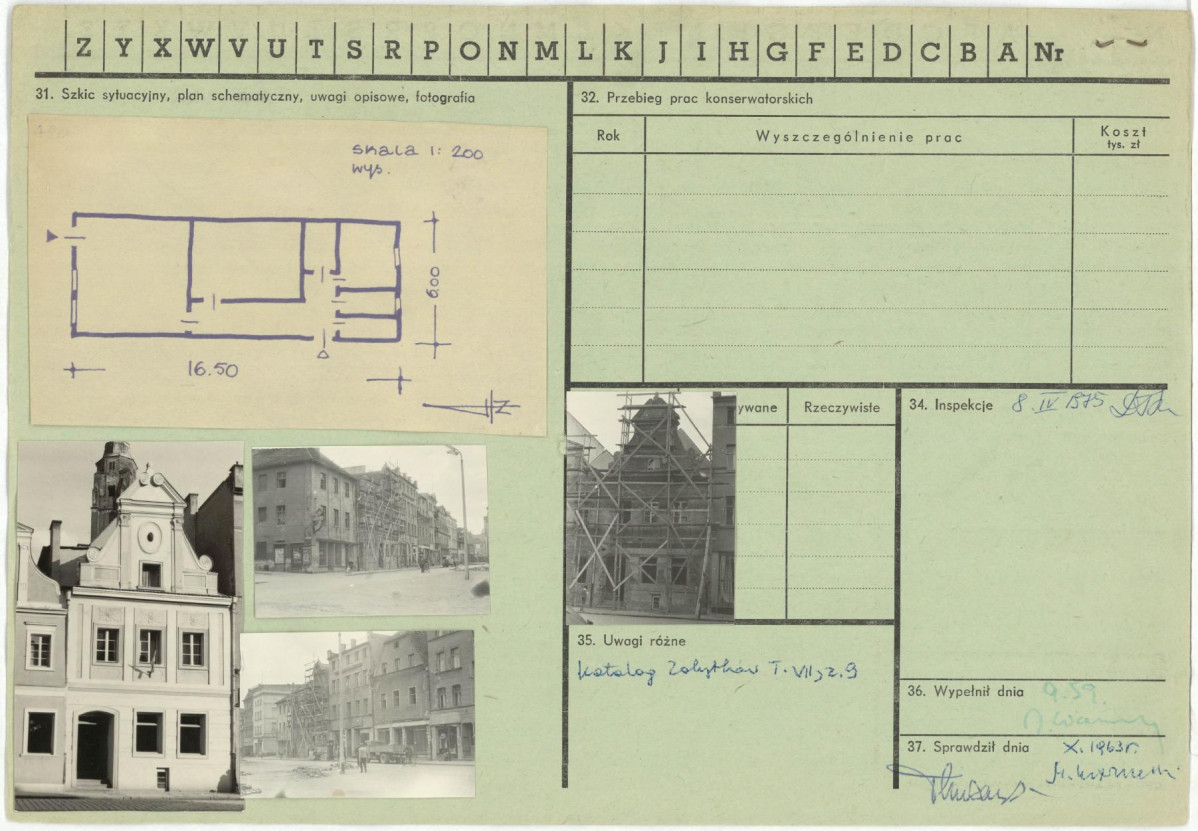 Z Y X W V U T S R P O N M L K J I H G F E D C B A Nr
31. Szkic sytuacyjny, plan schematyczny, uwagi opisowe, fotografia
skala 1: 200
wys.
6.00
16.50
32. Przebieg prac konserwatorskich
Rok Wyszczególnienie prac Koszt
tys. zł
ywane Rzeczywiste
34. Inspekcje 8. IV 1975
35. Uwagi różne
Katalog Zabytków T. VII, z. 9
36. Wypełnił dnia 9.59.
37. Sprawdził dnia X. 1963 r.